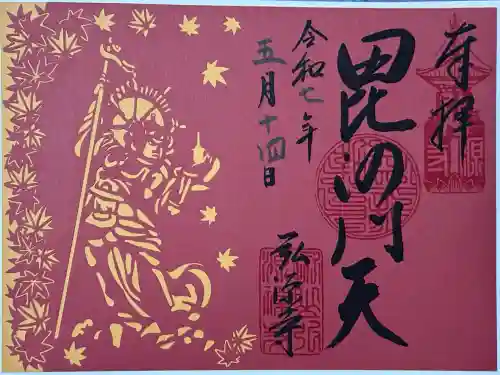 奉拝
毘沙門天
弘源寺
令和七年
五月十四日